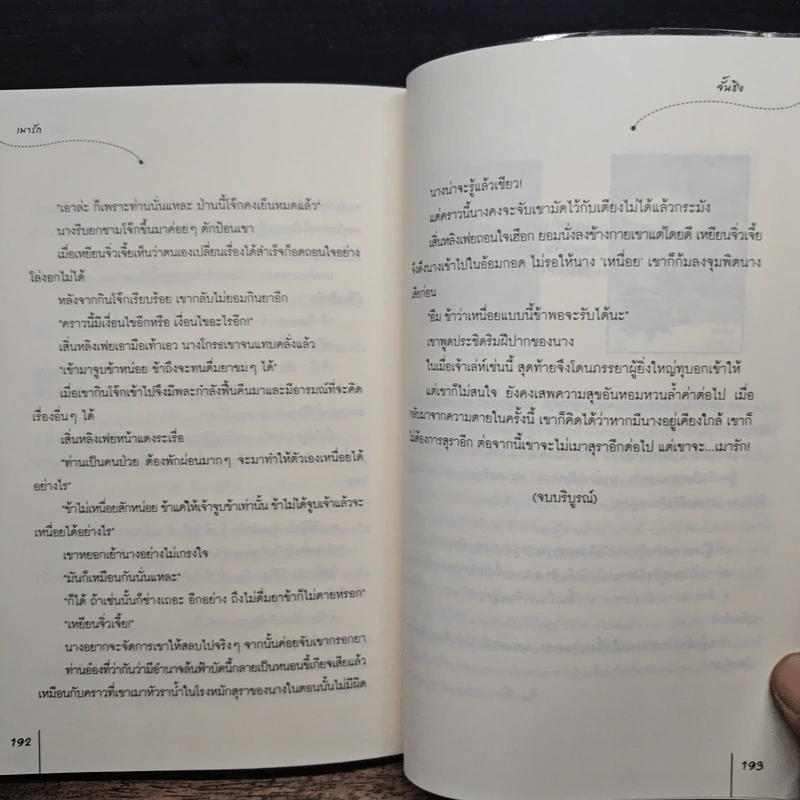 เมารัก
"เอาล่ะ ก็เพราะท่านนั่นแหละ ป่านนี้โจ๊กคงเย็นหมดแล้ว"
นางรีบยกชามโจ๊กขึ้นมาค่อยๆ ตักป้อนเขา
เมื่อเหยียนจิ่วเจี้ยเห็นว่าตนเองเปลี่ยนเรื่องได้สำเร็จก็อดถอนใจอย่าง
โล่งอกไม่ได้
หลังจากกินโจ๊กเรียบร้อย เขากลับไม่ยอมกินยาอีก
"คราวนี้มีเงื่อนไขอีกหรือ เงื่อนไขอะไรอีก!"
เสิ่นหลิงเฟยเอามือเท้าเอว นางโกรธเขาจนแทบคลั่งแล้ว
"เข้ามาจูบข้าหน่อย ข้าถึงจะทนดื่มยาขมๆ ได้"
เมื่อเขากินโจ๊กเข้าไปจึงมีพละกำลังฟื้นคืนมาและมีอารมณ์ที่จะคิด
เรื่องอื่นๆ ได้
เสิ่นหลิงเฟยหน้าแดงระเรื่อ
"ท่านเป็นคนป่วย ต้องพักผ่อนมากๆ จะมาทำให้ตัวเองเหนื่อยได้
อย่างไร"
"ข้าไม่เหนื่อยสักหน่อย ข้าแค่ให้เจ้าจูบข้าเท่านั้น ข้าไม่ได้จูบเจ้าแล้วจะ
เหนื่อยได้อย่างไร"
เขาหยอกเย้านางอย่างไม่เกรงใจ
"มันก็เหมือนกันนั่นแหละ"
"ก็ได้ ถ้าเช่นนั้นก็ช่างเถอะ อีกอย่าง ถึงไม่ดื่มยาข้าก็ไม่ตายหรอก"
"เหยียนจิ่วเจี้ย!"
นางอยากจะจัดการเขาให้สลบไปจริงๆ จากนั้นค่อยจับเขากรอกยา
ท่านอ๋องที่ว่ากันว่ามีอำนาจล้นฟ้าบัดนี้กลายเป็นหนอนขี้เกียจเสียแล้ว
เหมือนกับคราวที่เขาเมาหัวราน้ำในโรงหมักสุราของนางในตอนนั้นไม่มีผิด
192
จั้นชิง
นางน่าจะรู้แล้วเชียว!
แต่คราวนี้นางคงจะจับเขามัดไว้กับเตียงไม่ได้แล้วกระมัง
เสิ่นหลิงเฟยถอนใจเฮือก ยอมนั่งลงข้างกายเขาแต่โดยดี เหยียนจิ่วเจี้ย
จึงดึงนางเข้าไปในอ้อมกอด ไม่รอให้นาง 'เหนื่อย' เขาก็ก้มลงจุมพิตนาง
เสียก่อน
"อืม ข้าว่าเหนื่อยแบบนี้ข้าพอจะรับได้นะ"
เขาพูดประชิดริมฝีปากของนาง
ในเมื่อเจ้าเล่ห์เช่นนี้ สุดท้ายจึงโดนภรรยาผู้ยิ่งใหญ่ทุบอกเข้าให้
แต่เขาก็ไม่สนใจ ยังคงเสพความสุขอันหอมหวานล้ำค่าต่อไป เมื่อ
กลับมาจากความตายในครั้งนี้ เขาก็คิดได้ว่าหากมีนางอยู่เคียงใกล้ เขาก็
ไม่ต้องการสุราอีก ต่อจากนี้เขาจะไม่เมาสุราอีกต่อไป แต่เขาจะ...เมารัก!
(จบบริบูรณ์)
193